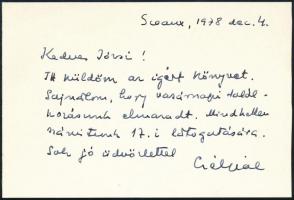 Sceaux, 1978 dec. 4.
Kedves Józsi!
Itt küldöm az igért könyvet.
Sajnálom, hogy vasárnapi talál-
kozásunk elmaradt. Mindketten
számitunk 17.-i látogatására.
Sok jó üdvözlettel